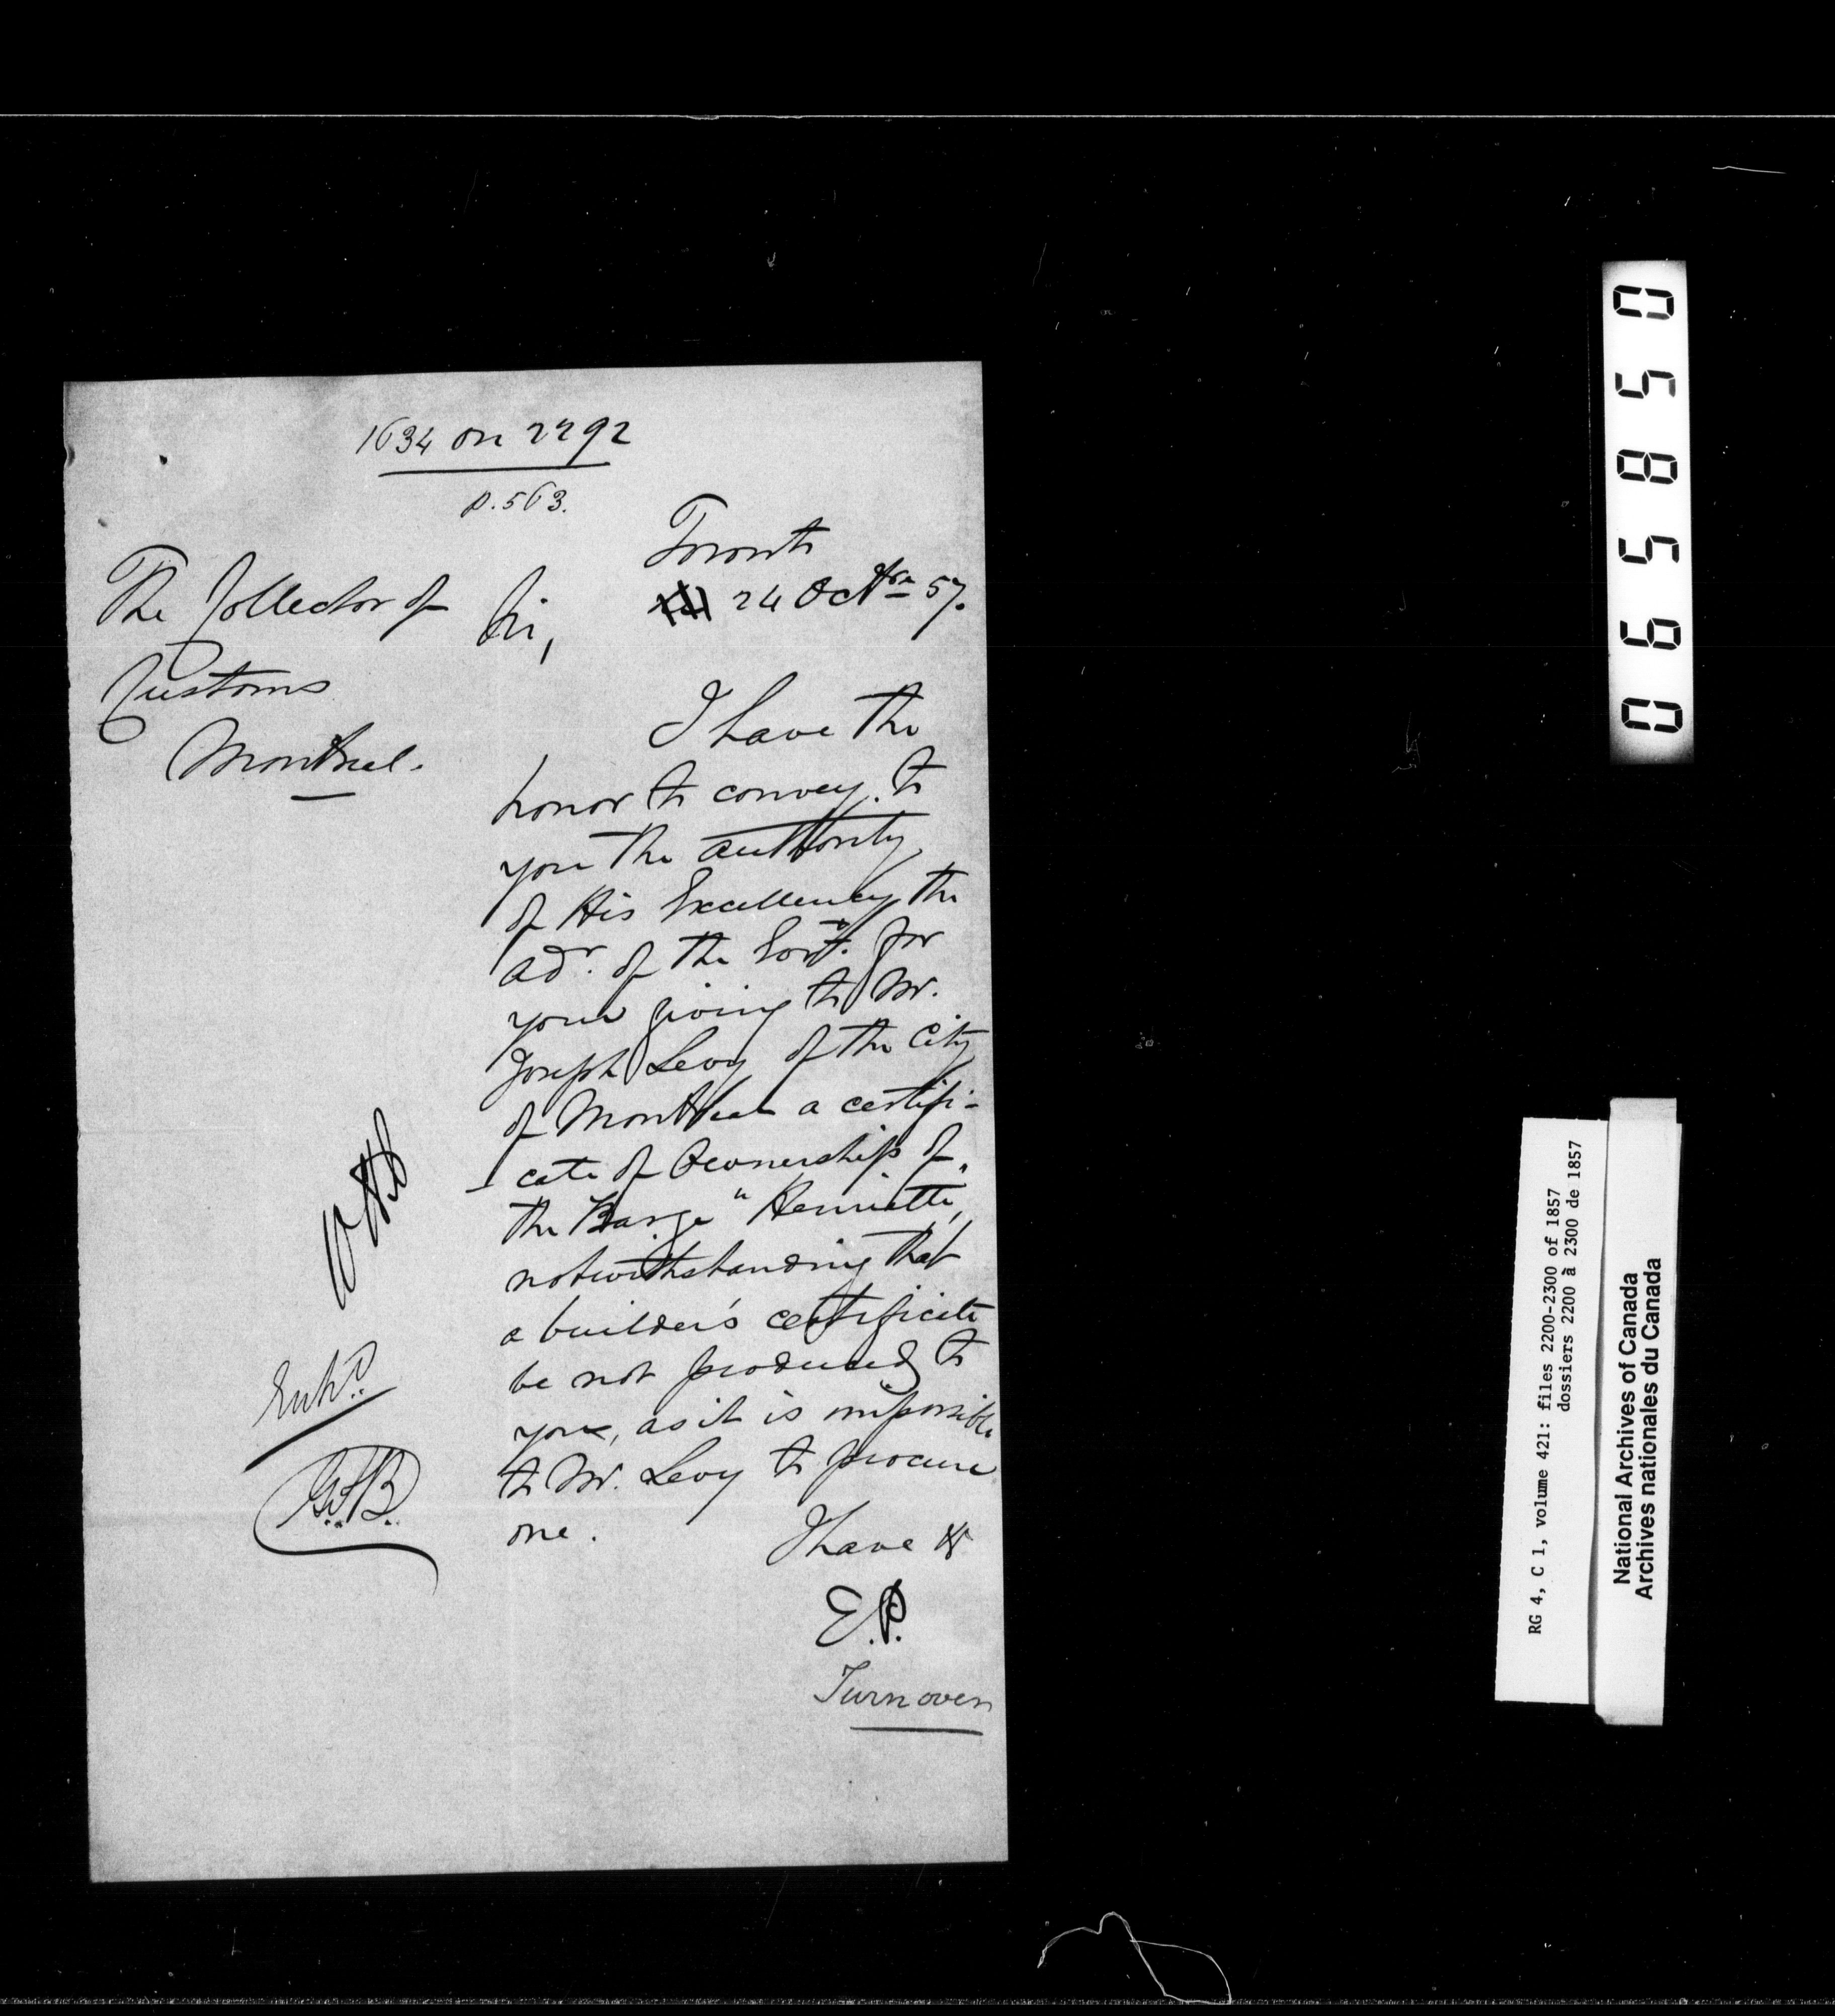 1634 on 2292
p. 563.
Toronto
24 Octbre 57.
The Collector of
Customs
Montreal.
Sir,
I have the
honor to convey to
you the authority
of His Excellency the
Adr. of the Govt. for
your giving to Mr.
Joseph Levy of the City
of Montreal a certifi-
cate of Ownership of
the Barge "Henriette",
notwithstanding that
a builder's certificate
be not produced to
you, as it is impossible
to Mr. Levy to procure
one.
I have &
E.P.
Turn over
Entd.
G.F.B.
065850
RG 4, C 1, volume 421: files 2200-2300 of 1857
dossiers 2200 à 2300 de 1857
National Archives of Canada
Archives nationales du Canada